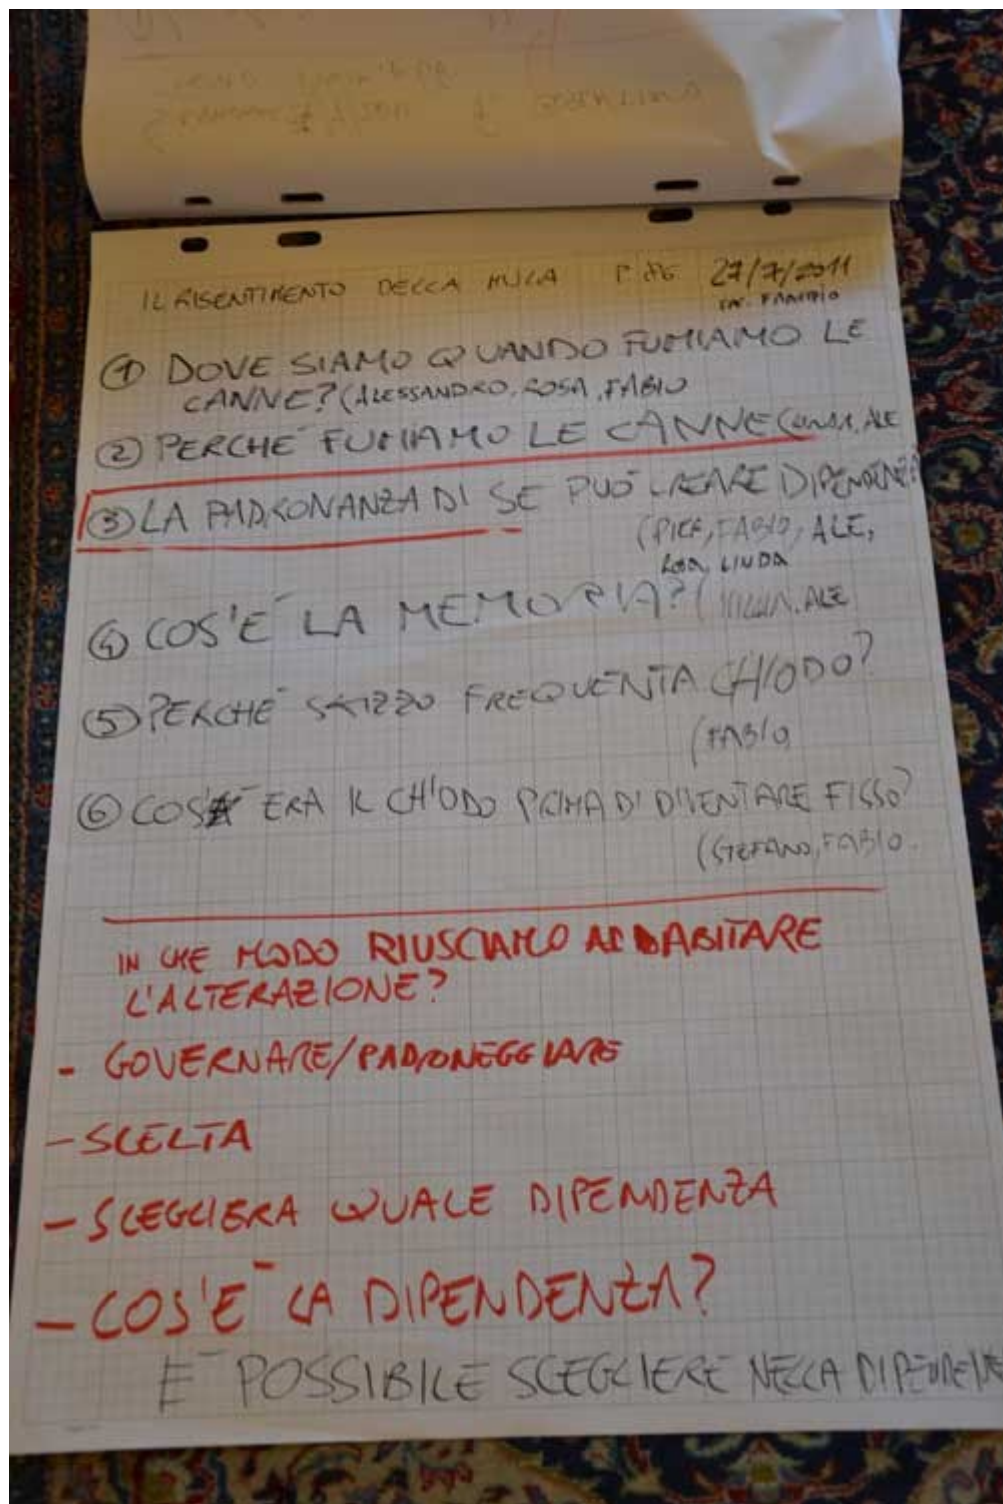 IL RISENTIMENTO DELLA MULA P. 86 27/7/2011
① DOVE SIAMO QUANDO FUMIAMO LE
CANNE? (ALESSANDRO, ROSA, FABIO
② PERCHE' FUMIAMO LE CANNE ALE
③ LA PADRONANZA DI SE PUÒ CREARE DIPENDENZA?
(PIER, FABIO, ALE,
ROSA, LINDA
④ COS'E' LA MEMORIA? ( ALE
⑤ PERCHE' SKIZZO FREQUENTA CHIODO?
(FABIO,
⑥ COS' ERA IL CHIODO PRIMA DI DIVENTARE FISSO?
(STEFANO, FABIO.
IN CHE MODO RIUSCIAMO AD ABITARE
L'ALTERAZIONE?
- GOVERNARE/PADRONEGGIARE
- SCELTA
- SCEGLIERA QUALE DIPENDENZA
- COS'E' LA DIPENDENZA?
E' POSSIBILE SCEGLIERE NELLA DIPENDENZ